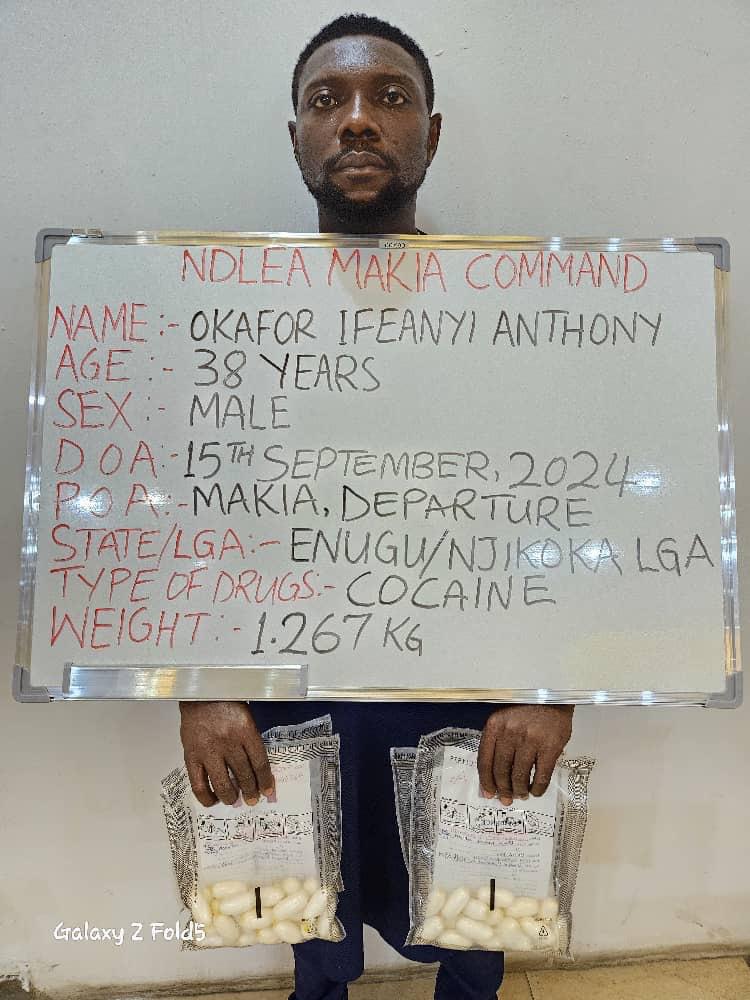 NDLEA MAKIA COMMAND
NAME:- OKAFOR IFEANYI ANTHONY
AGE:- 38 YEARS
SEX:- MALE
DOA:- 15TH SEPTEMBER, 2024
POA:- MAKIA, DEPARTURE
STATE/LGA:- ENUGU/NJIKOKA LGA
TYPE OF DRUGS:- COCAINE
WEIGHT:- 1.267 KG
Galaxy Z Fold5